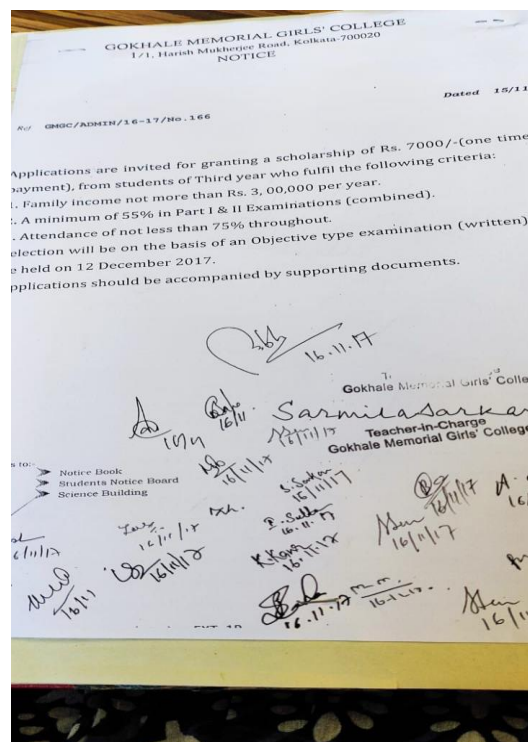 GOKHALE MEMORIAL GIRLS' COLLEGE
1/1, Harish Mukherjee Road, Kolkata-700020
NOTICE
Dated 15/11
Ref GMGC/ADMIN/16-17/No.166
Applications are invited for granting a scholarship of Rs. 7000/-(one time
payment), from students of Third year who fulfil the following criteria:
. Family income not more than Rs. 3, 00,000 per year.
. A minimum of 55% in Part I & II Examinations (combined).
. Attendance of not less than 75% throughout.
election will be on the basis of an Objective type examination (written)
e held on 12 December 2017.
pplications should be accompanied by supporting documents.
16.11.17
Gokhale Memorial Girls' Colle
Sarmila Sarkar
16/11
16/11/17
Teacher-in-Charge
Gokhale Memorial Girls' College
s to:-
Notice Book
Students Notice Board
Science Building
16/11/17
S. Sarkar
16/11/17
16/11/17
16.11.17
16/11/17
6/11/17
16/11/17
K. Kang
16.11.17
16/11/17
16/11
16.11.17
m.m.
16.11.17
16/11